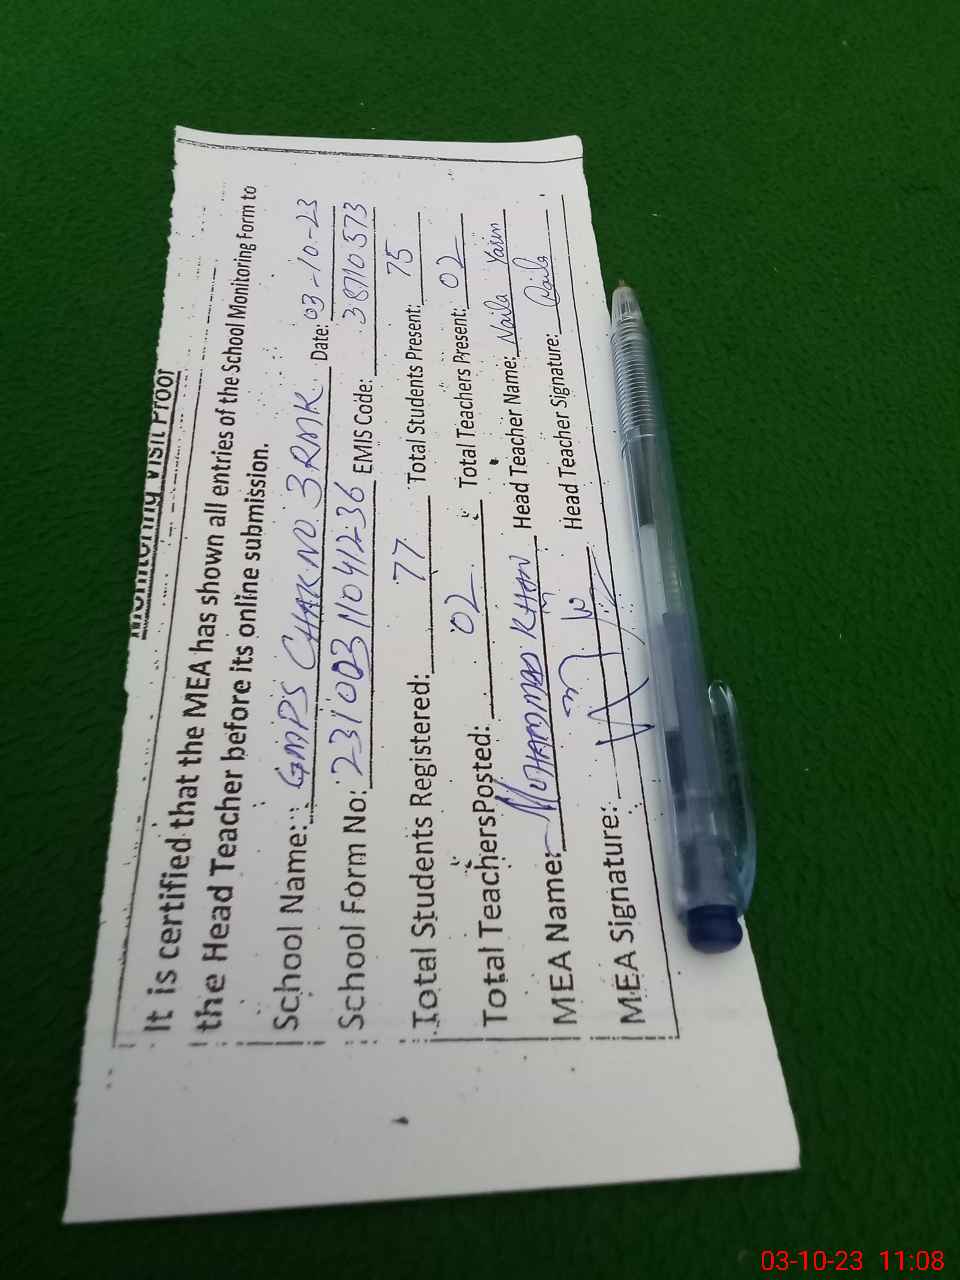 Monitoring Visit Proof
It is certified that the MEA has shown all entries of the School Monitoring Form to
the Head Teacher before its online submission.
School Name: GMPS CHAK NO. 3 RMK Date: 03-10-23
School Form No: 231003110411236 EMIS Code: 38710573
Total Students Registered: 77 Total Students Present: 75
Total TeachersPosted: 02 Total Teachers Present: 02
MEA Name: MUHAMMAD KHAN Head Teacher Name: Naila
MEA Signature: Head Teacher Signature: Naila
03-10-23 11:08